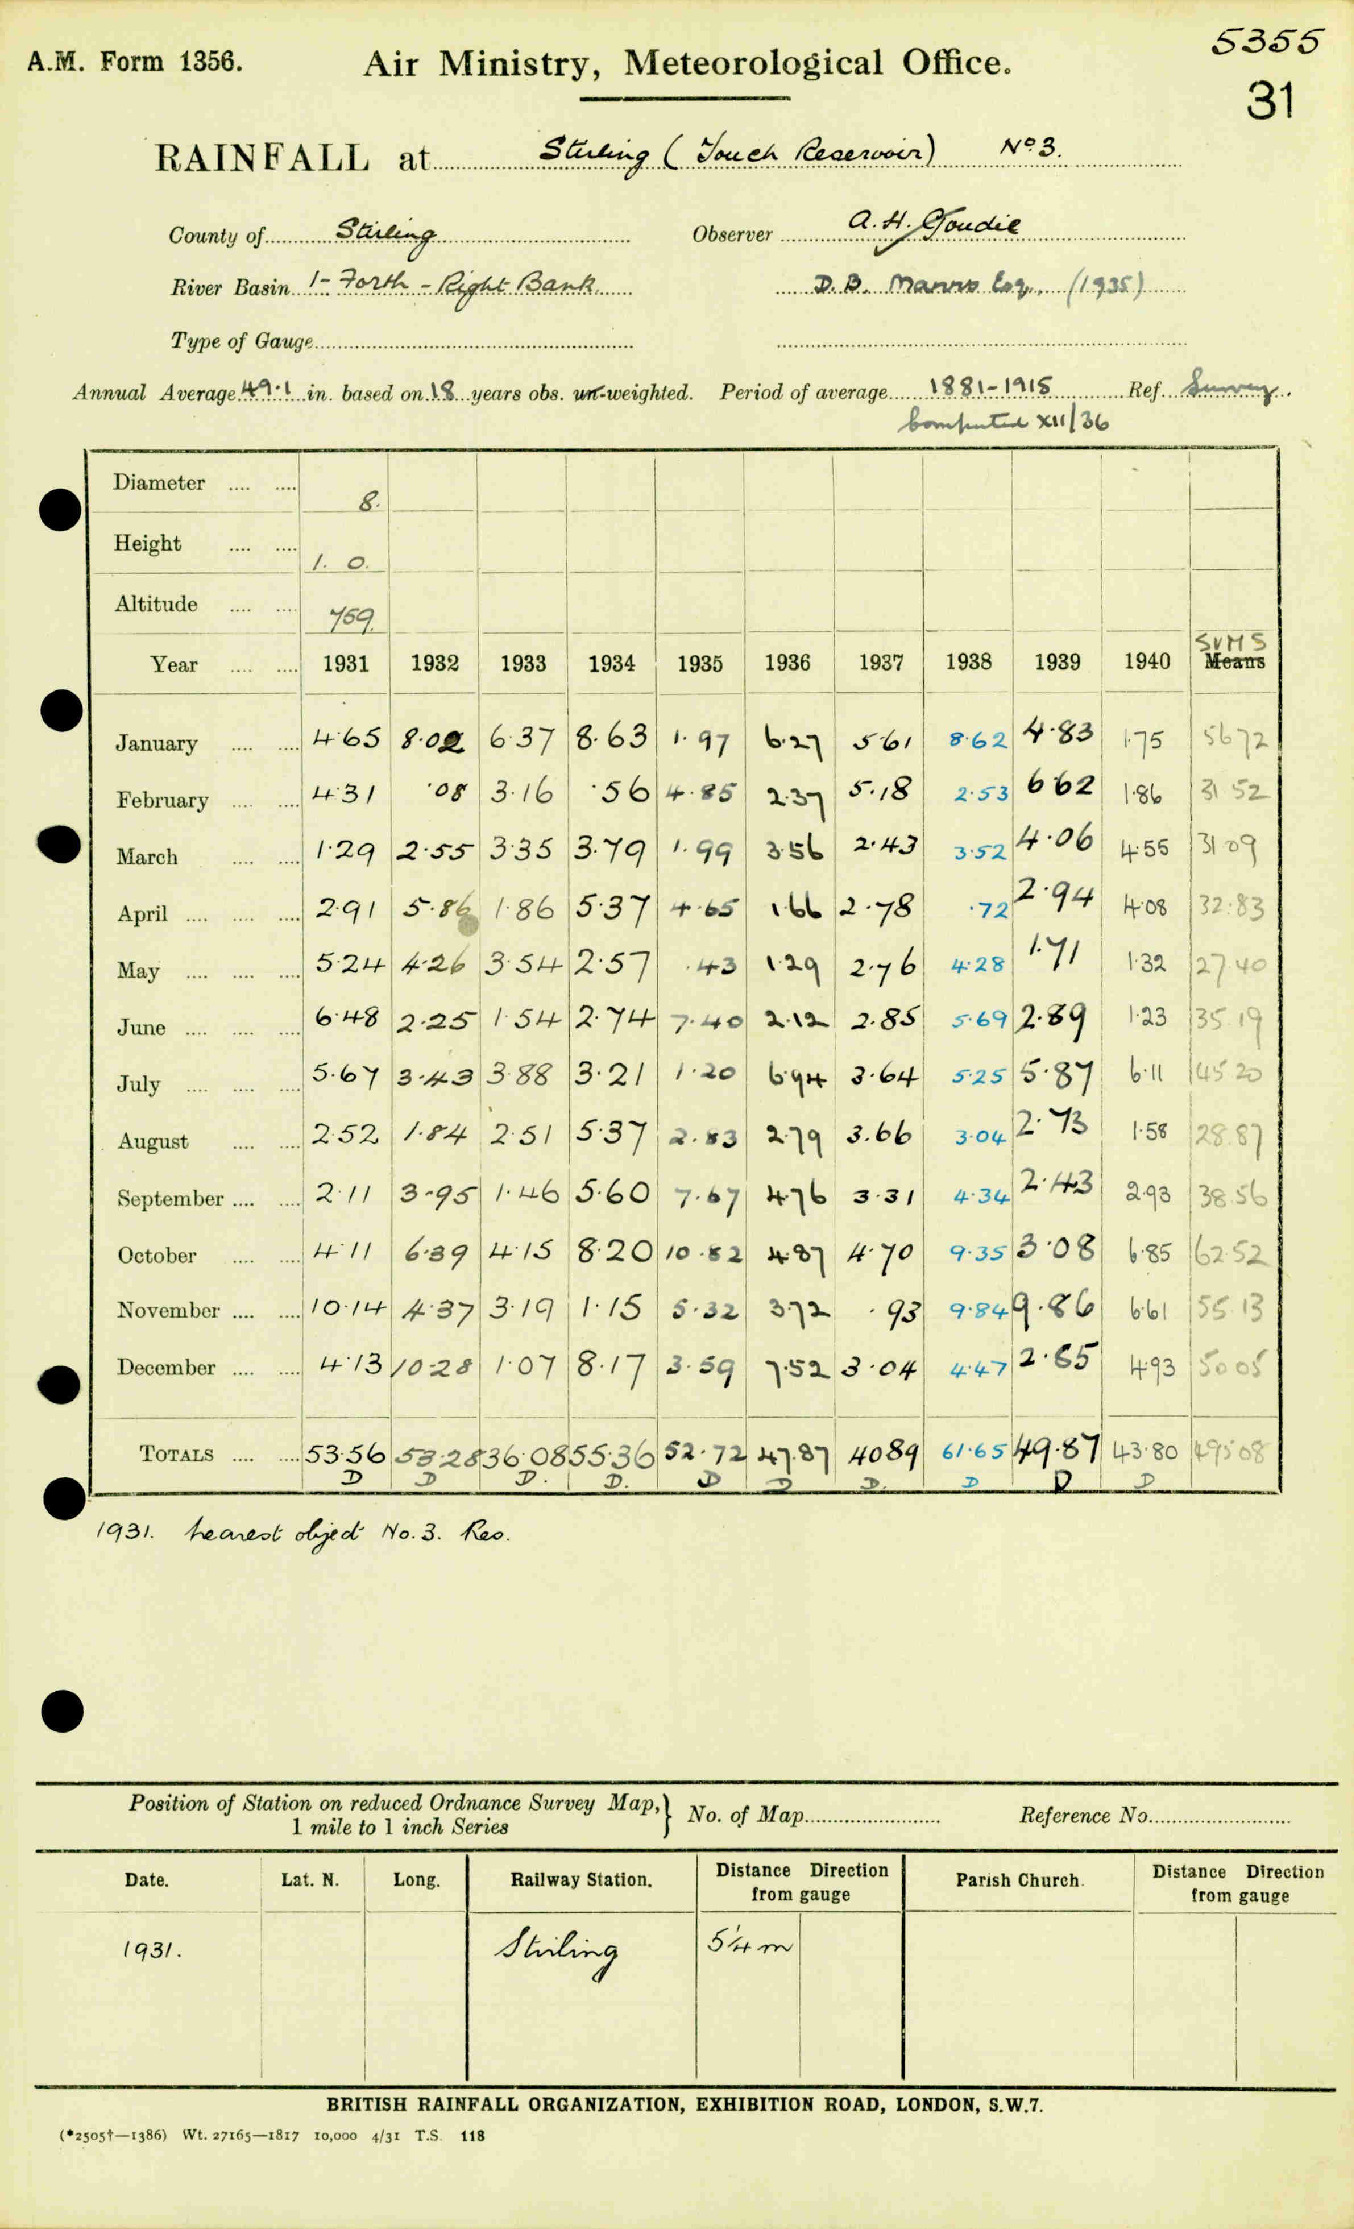 5355
A.M. Form 1356. Air Ministry, Meteorological Office.
31
RAINFALL at Stirling (Touch Reservoir) No 3.
County of Stirling Observer A.H. Goudie
River Basin 1- Forth - Right Bank D.B. Manro Esq. (1935)
Type of Gauge
Annual Average 49.1 in. based on 18 years obs. un-weighted. Period of average 1881-1915 Ref. Survey.
Computed XII/36
Diameter .... .... 8.
Height .... .... 1. 0.
Altitude .... .... 759.
SUMS
Year .... .... 1931 1932 1933 1934 1935 1936 1937 1938 1939 1940 Means
January .... .... 4.65 8.02 6.37 8.63 1.97 6.27 5.61 8.62 4.83 1.75 56.72
February .... .... 4.31 .08 3.16 .56 4.85 2.37 5.18 2.53 6.62 1.86 31.52
March .... .... 1.29 2.55 3.35 3.79 1.99 3.56 2.43 3.52 4.06 4.55 31.09
April .... .... .... 2.91 5.86 1.86 5.37 4.65 1.66 2.78 .72 2.94 4.08 32.83
May .... .... .... 5.24 4.26 3.54 2.57 .43 1.29 2.76 4.28 1.71 1.32 27.40
June .... .... .... 6.48 2.25 1.54 2.74 7.40 2.12 2.85 5.69 2.89 1.23 35.19
July .... .... .... 5.67 3.43 3.88 3.21 1.20 6.94 3.64 5.25 5.87 6.11 45.20
August .... .... 2.52 1.84 2.51 5.37 2.83 2.79 3.66 3.04 2.73 1.58 28.87
September .... .... 2.11 3.95 1.46 5.60 7.67 4.76 3.31 4.34 2.43 2.93 38.56
October .... .... 4.11 6.39 4.15 8.20 10.82 4.87 4.70 9.35 3.08 6.85 62.52
November .... .... 10.14 4.37 3.19 1.15 5.32 3.72 .93 9.84 9.86 6.61 55.13
December .... .... 4.13 10.28 1.07 8.17 3.59 7.52 3.04 4.47 2.85 4.93 50.05
TOTALS .... .... 53.56 53.28 36.08 55.36 52.72 47.87 40.89 61.65 49.87 43.80 495.08
D D D. D. D D D. D D D
1931. nearest object No. 3. Res.
Position of Station on reduced Ordnance Survey Map,} No. of Map Reference No.
1 mile to 1 inch Series
Date. Lat. N. Long. Railway Station. Distance Direction from gauge Parish Church. Distance Direction from gauge
1931. Stirling 5¼ m
BRITISH RAINFALL ORGANIZATION, EXHIBITION ROAD, LONDON, S.W.7.
(*2505†—1386) Wt. 27165—1817 10,000 4/31 T.S. 118